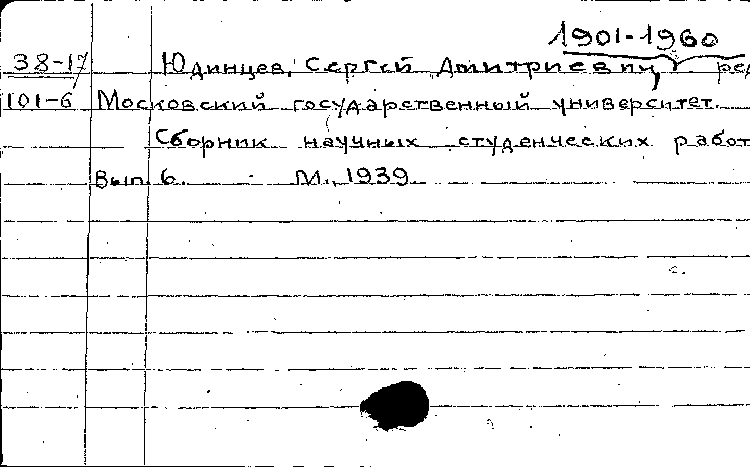 1901-1960
38-17 Юдинцев, Сергей Дмитриевич, ред
101-6 Московский государственный университет.
Сборник научных студенческих работ
Вып. 6. М., 1939
с.